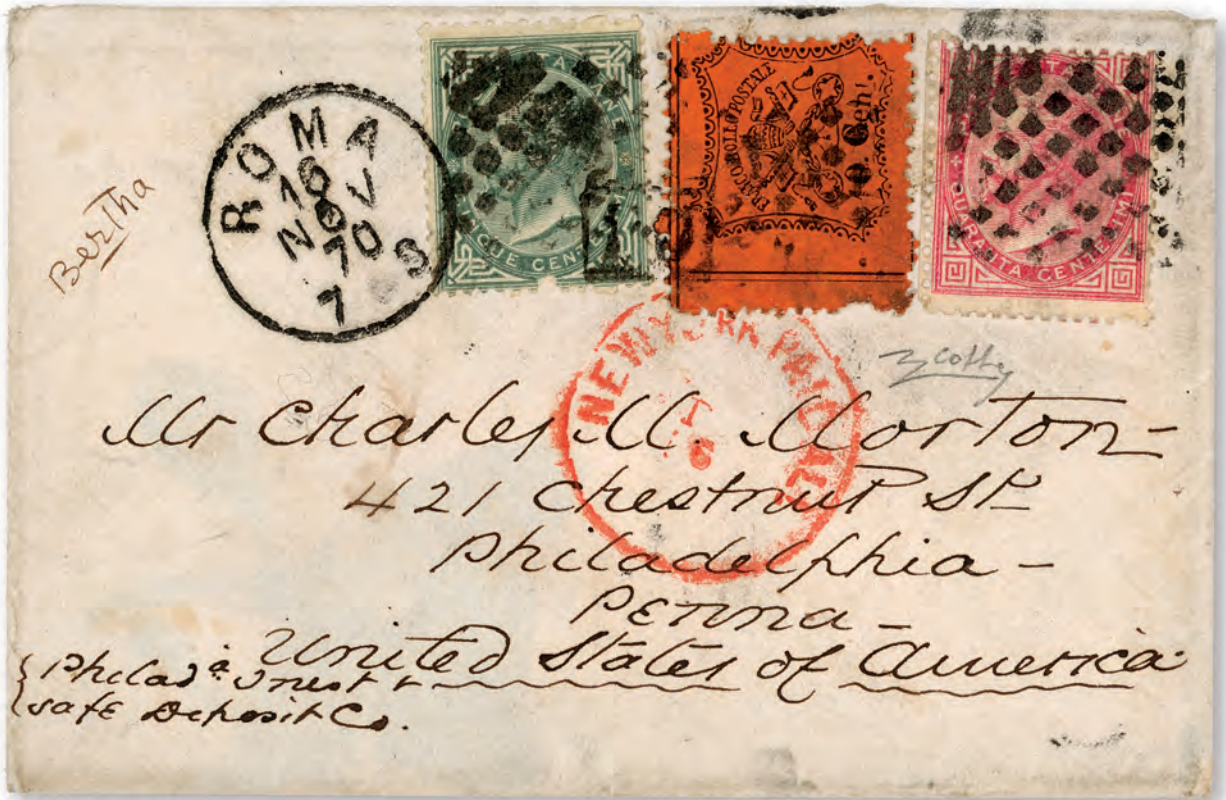 Bertha
ROMA
16
NOV
70
7 S
CINQUE CENTESIMI
FRANCOBOLLO POSTALE
10. Cen!
QUARANTA CENTESIMI
NEW YORK PAID ALL
Mr Charles M. Morton-
421 Chestnut St
Philadelphia-
Penna-
United States of America
Philada Trust &
Safe Deposit Co.